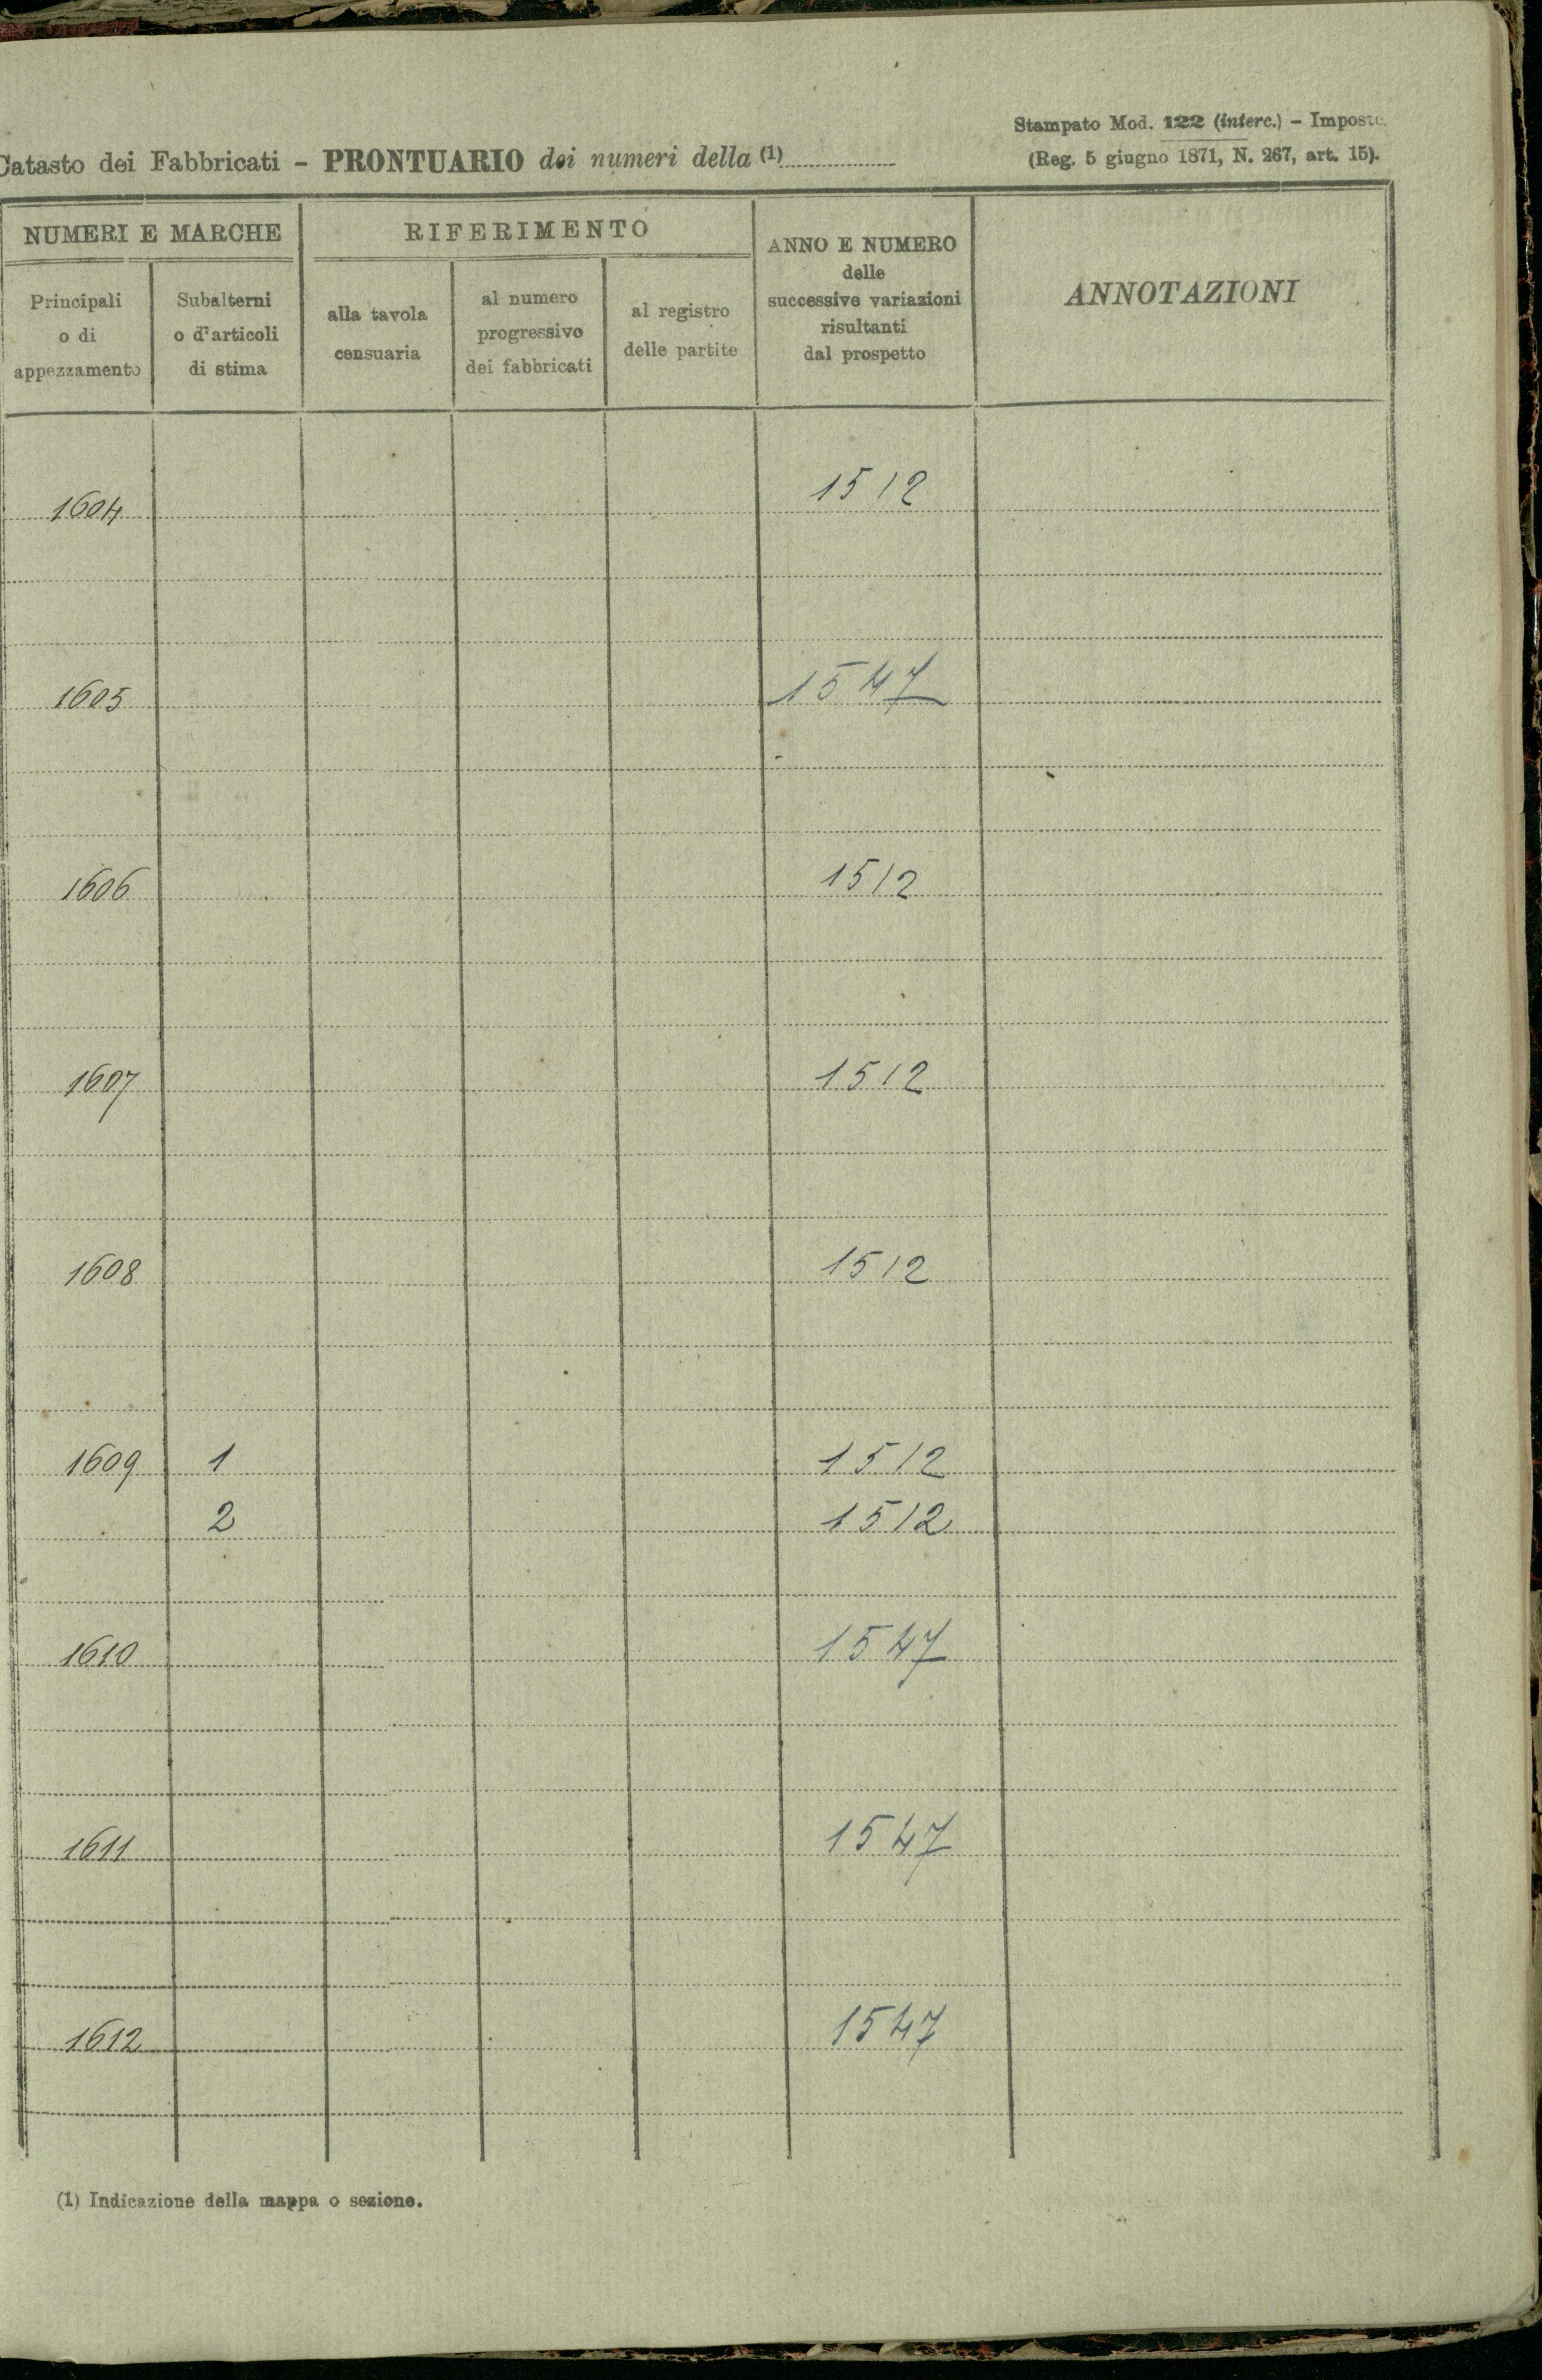 Stampato Mod. 122 (interc.) – Imposte.
Catasto dei Fabbricati – PRONTUARIO dei numeri della (1)
(Reg. 5 giugno 1871, N. 267, art. 15).
NUMERI E MARCHE
Principali
o di
appezzamento
Subalterni
o d'articoli
di stima
RIFERIMENTO
alla tavola
censuaria
al numero
progressivo
dei fabbricati
al registro
delle partite
ANNO E NUMERO
delle
successive variazioni
risultanti
dal prospetto
ANNOTAZIONI
1604 1512
1605 1547
1606 1512
1607 1512
1608 1512
1609 1 1512
2 1512
1610 1547
1611 1547
1612 1547
(1) Indicazione della mappa o sezione.